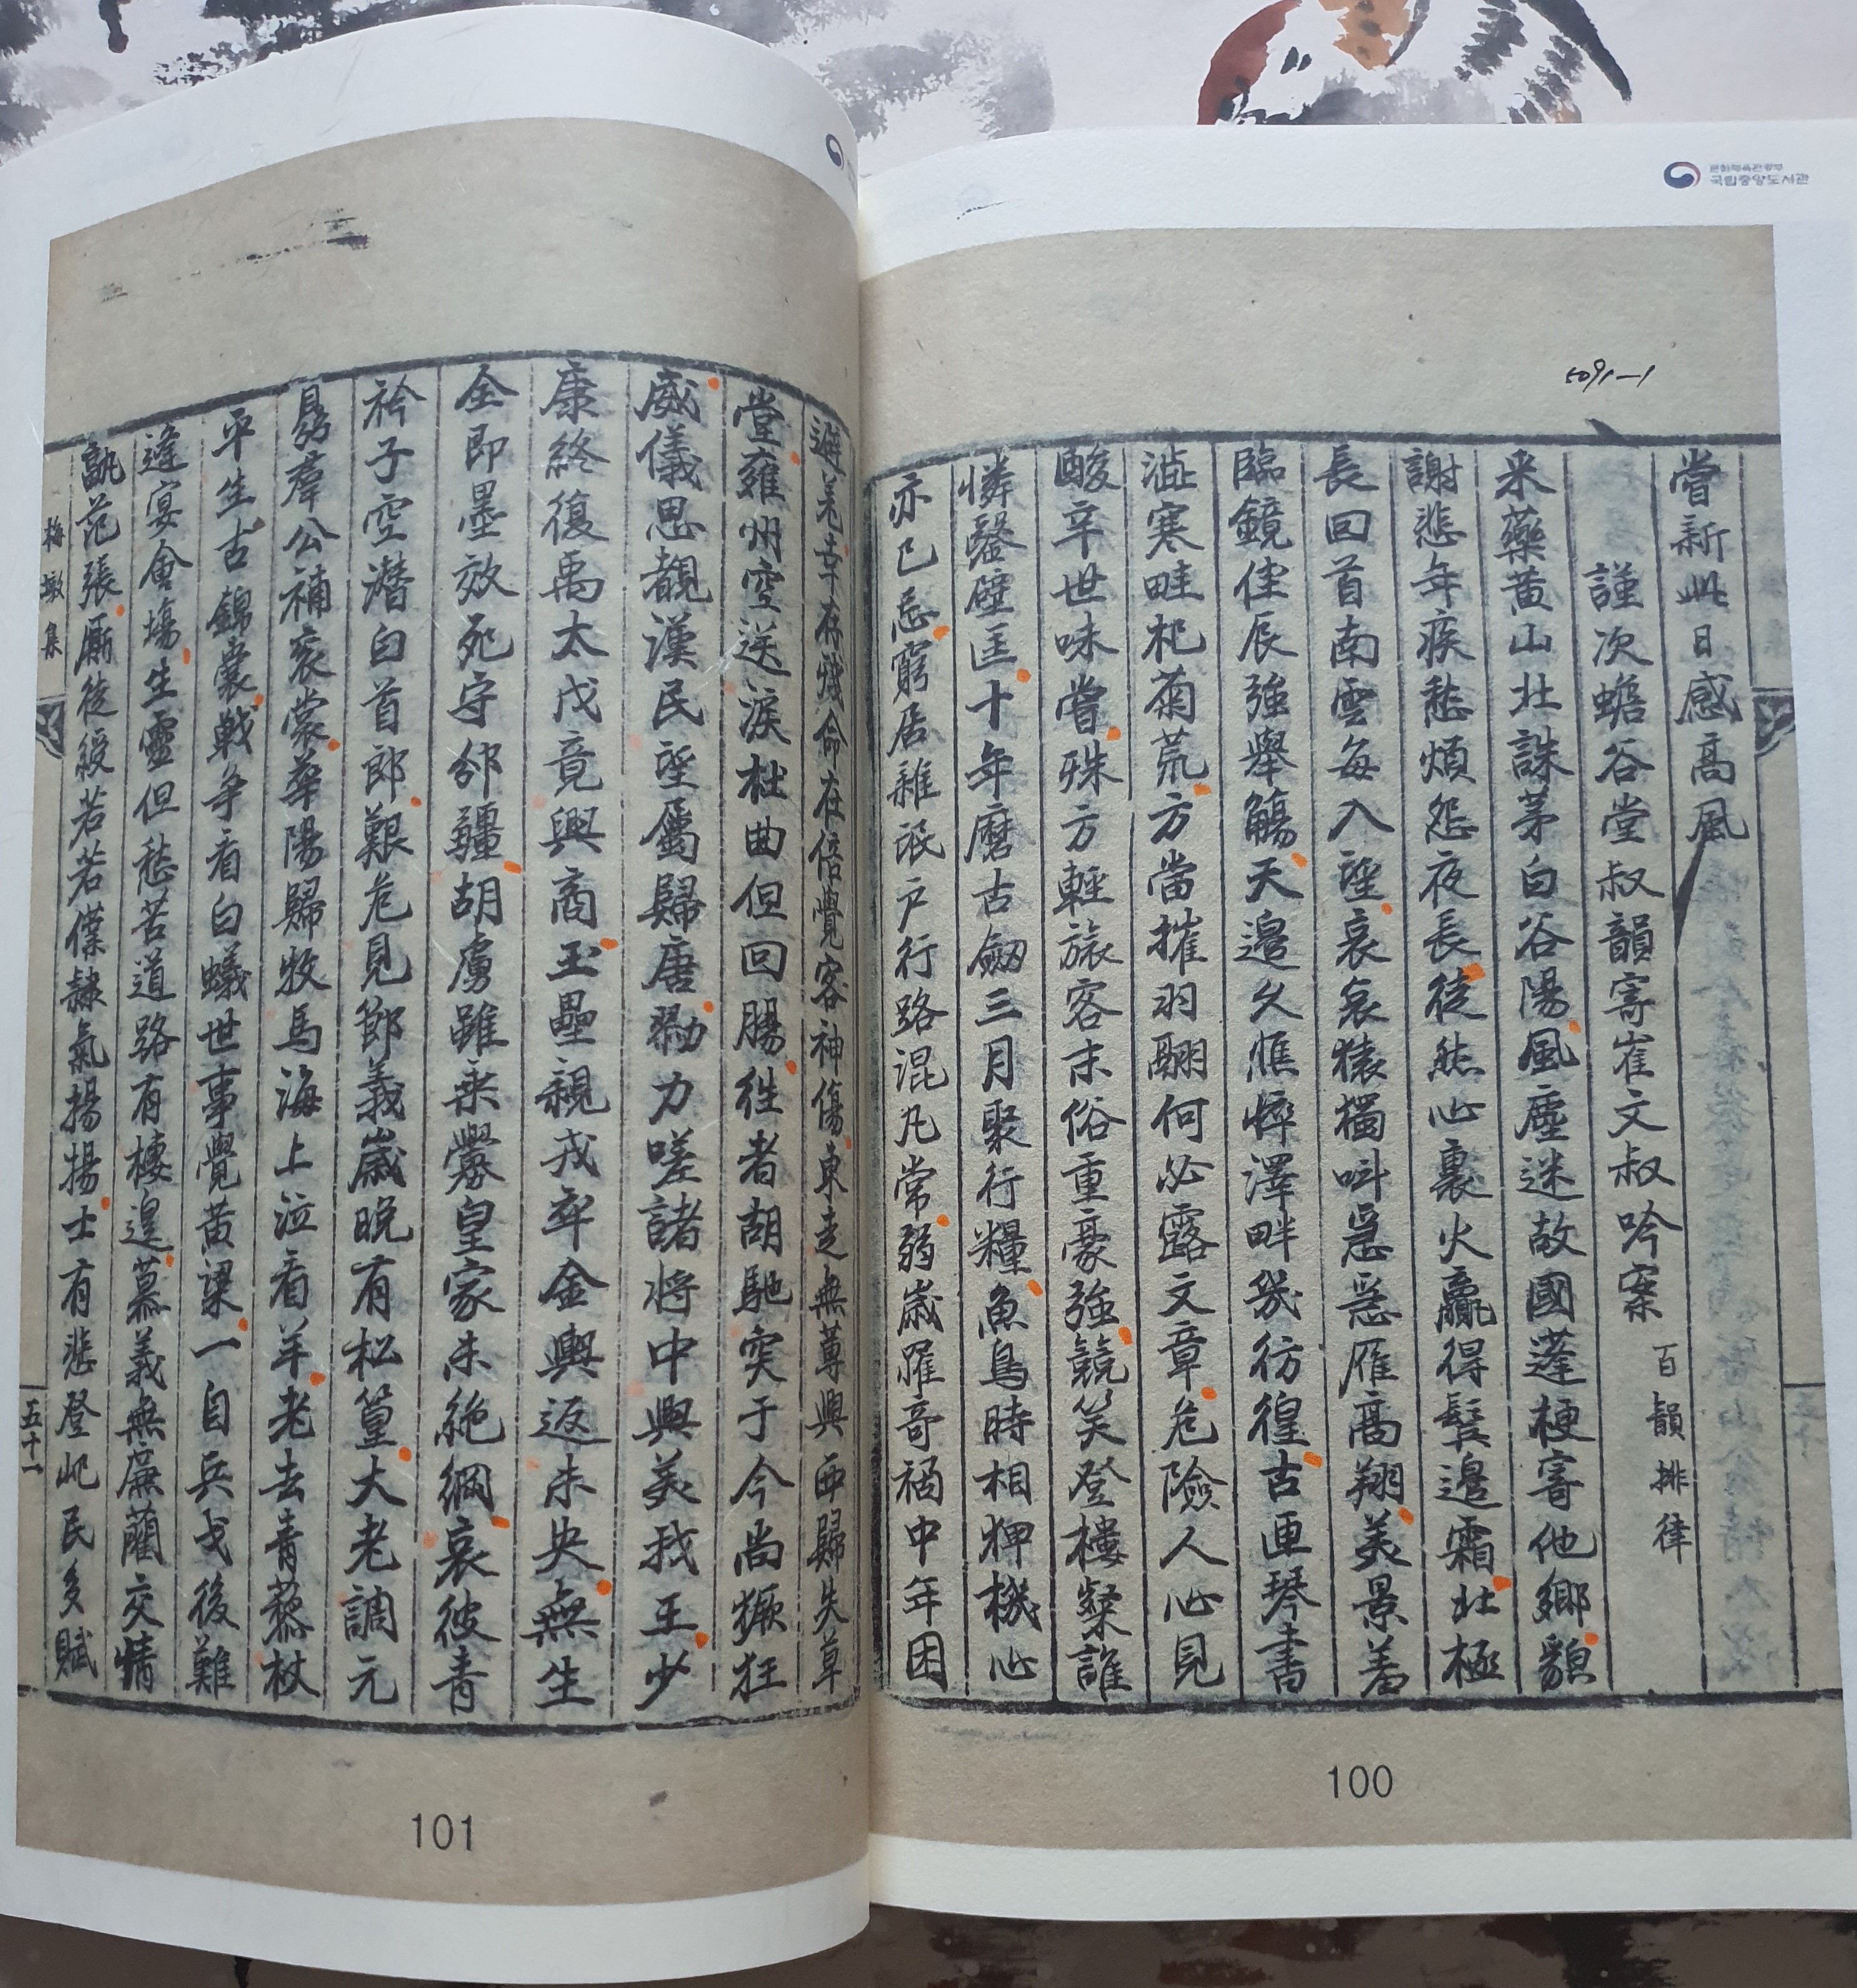 문화체육관광부
국립중앙도서관
5091-1
嘗新此日感高風
謹次蟾谷堂叔韻寄崔文叔吟案 百韻排律
采藥黃山北誅茅白谷陽風塵迷故國蓬梗寄他鄉貌
謝悲年疾愁煩怨夜長徒然心裏火贏得鬂邊霜北極
長回首南雲每入望哀哀猿獨叫急急雁高翔美景羞
臨鏡佳辰強舉觴天邊久憔悴澤畔幾彷徨古匣琴書
澁寒畦杞菊荒方當摧羽翮何必露文章危險人心見
酸辛世味嘗殊方輕旅客末俗重豪強競笑登樓粲誰
憐鑿壁匡十年磨古劒三月聚行糧魚鳥時相狎機心
亦已忘窮居雜氓戶行路混凡常弱歲罹奇禍中年困
100
堂雍州空送淚杜曲但回腸徃者胡馳突于今尚獗狂
威儀思覩漢民望屬歸唐勠力嗟諸将中興美我王少
康終復禹太戊竟興商玉壘親戎卒金輿返未央無生
全即墨效死守邠疆胡虜雖乘釁皇家未絶綱哀彼青
衿子空潜白首郎艱危見節義歲晚有松篁大老調元
鼎羣公補衮裳華陽歸牧馬海上泣看羊老去青藜杖
平生古錦囊戰争看白蟻世事覺黃粱一自兵戈後難
逢宴會塲生靈但愁苦道路有棲遑慕義無廉藺交情
孰范張廝徒綬若若僕隷氣揚揚士有悲登屺民多賦
梅墩集
五十一
101